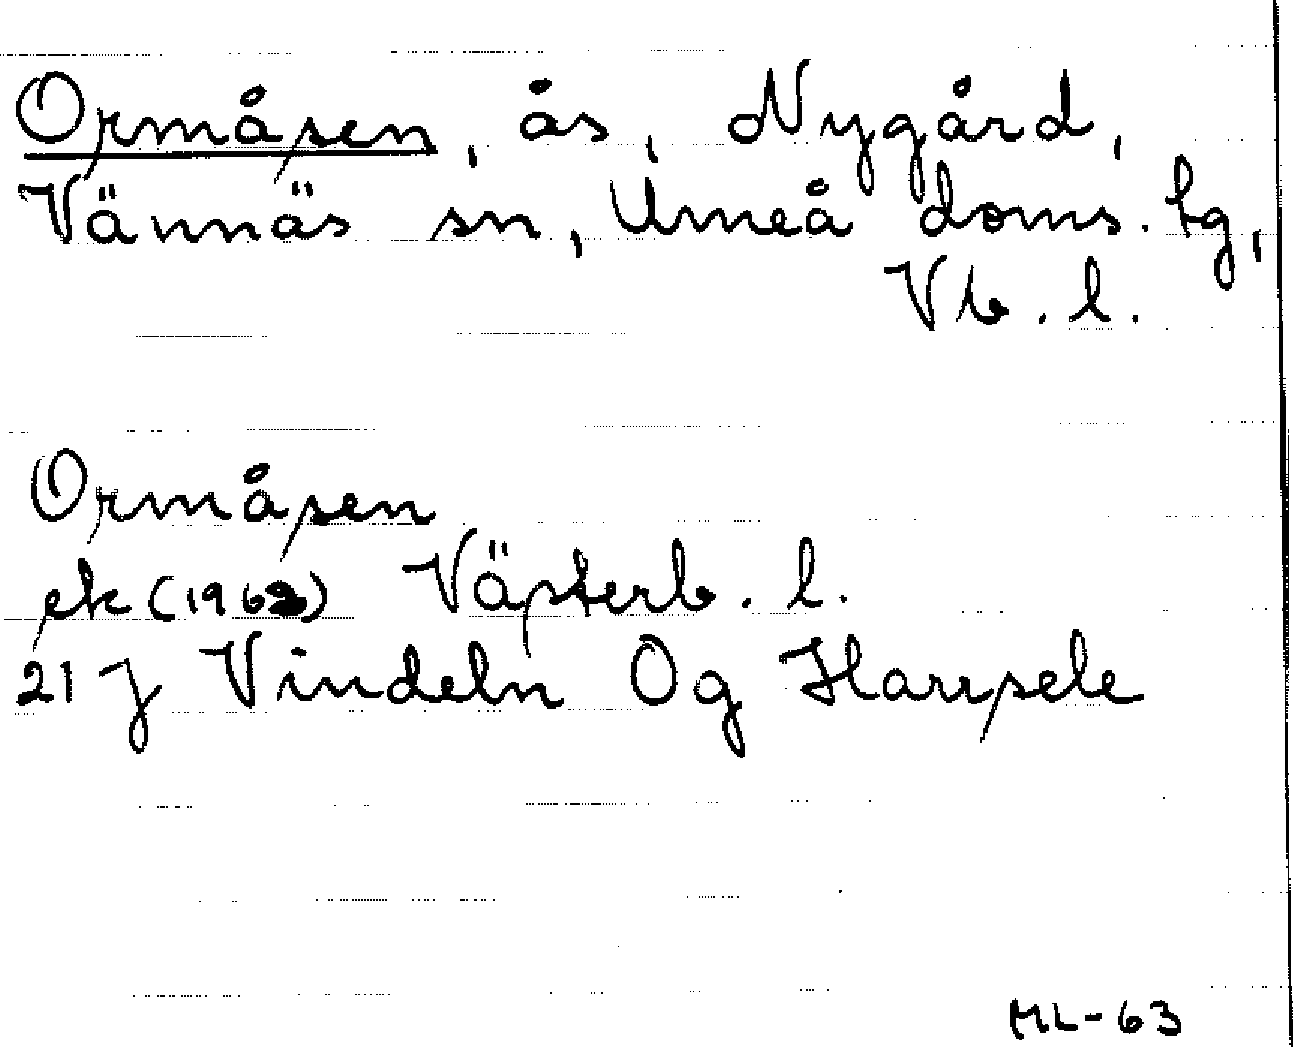 Ormåsen, ås, Nygård,
Vännäs sn, Umeå doms. tg,
Vb. l.
Ormåsen
ek (1962) Västerb. l.
21 J Vindeln Og Harrsele
ML-63